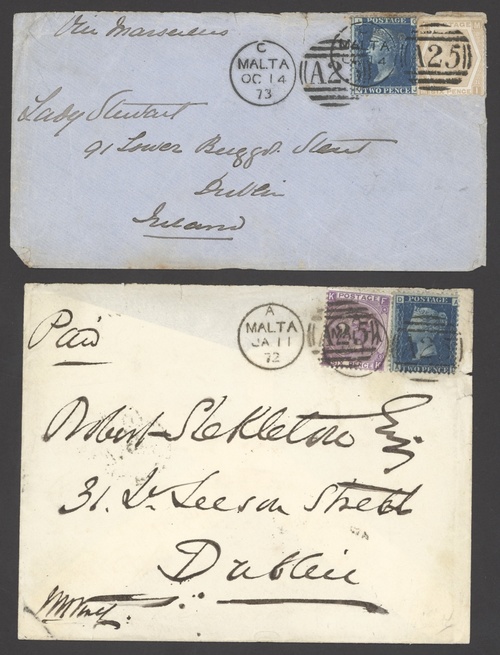 Via Marseilles
C
MALTA
OC 14
73
A25
POSTAGE
TWO PENCE
MALTA
A25
Lady Stewart
91 Lower Baggot Street
Dublin
Ireland
Paid
A
MALTA
JA 11
72
POSTAGE
A25
SIX PENCE
POSTAGE
TWO PENCE
Robert Stekleton Esq
31. Lr. Leeson Street
Dublin